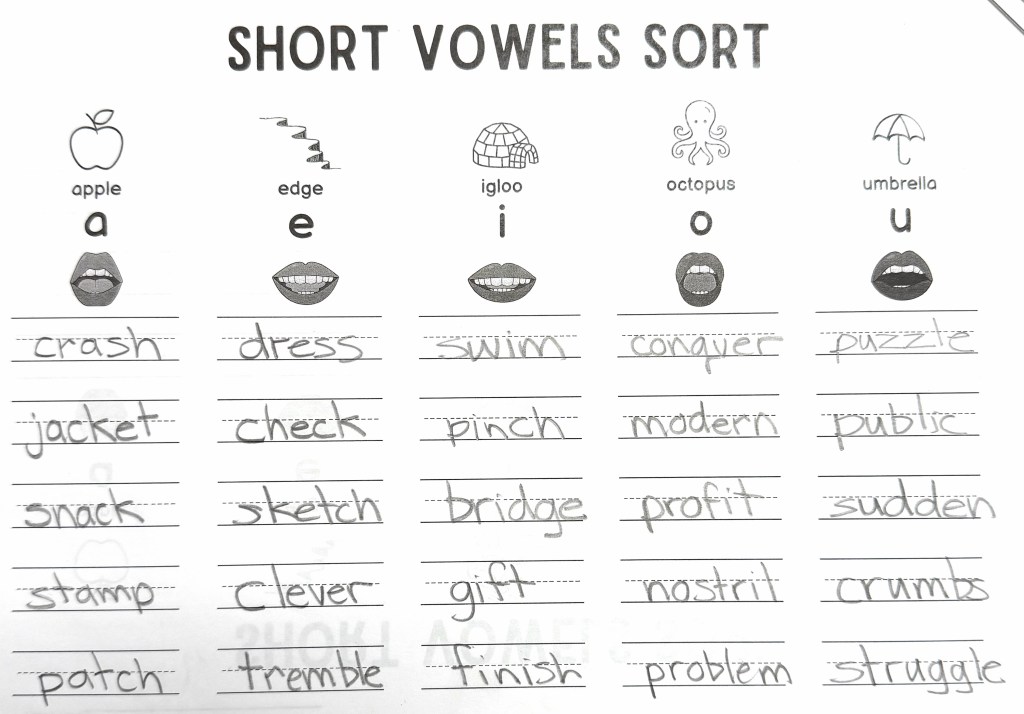 SHORT VOWELS SORT
apple edge igloo octopus umbrella
a e i o u
crash dress swim conquer puzzle
jacket check pinch modern public
snack sketch bridge profit sudden
stamp clever gift nostril crumbs
patch tremble finish problem struggle